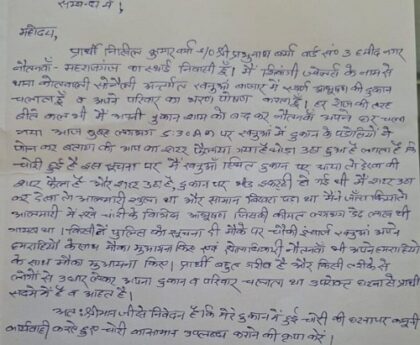 सम्बन्ध में,
महोदय,
प्रार्थी नितिन कुमार वर्मा S/O श्री प्रभुनाथ वर्मा वार्ड सं० 3 हमीद नगर
नौतनवाँ - महराजगंज का स्थाई निवासी हूँ। मैं शिवांगी ज्वेलर्स के नाम से
थाना कोतवाली सोनौली अन्तर्गत खनुआँ बाजार में स्वर्ण आभूषण की दुकान
चलाता हूँ व अपने परिवार का भरण पोषण करता हूँ। हर रोज की तरह
बीते कल भी मैं अपनी दुकान शाम को बंद कर नौतनवाँ अपने घर चला
गया आज सुबह लगभग 5:30 AM पर खनुआँ में दुकान के पडोसियों ने
फोन कर बताया की आप का शटर गया है थोडा उठा हुआ है लगता है कि
चोरी हुई है इस सूचना पर मैं खनुआँ स्थित दुकान पर पाया तो देखा की
शटर फैला है और शटर उठा है, दुकान पर भीड इकट्ठी हो गई थी मैं शटर उठा
कर देखा तो आलमारी खुला था और सामान बिखरा पडा था मैंने जाँच किया तो
आलमारी में रखे चांदी के विभिन्न आभूषण जिसकी कीमत लगभग डेढ लाख थी
गायब था। किसी ने पुलिस को सूचना दी मौके पर चौकी इंचार्ज खनुआँ अपने
हमराहियों के साथ मौका मुआयना किए एवं नौतनवाँ भी अपने हमराहियो
के साथ मौका मुआयना किए। प्रार्थी बहुत गरीब है और किसी तरीके से
लोगों से उधार लेकर अपना दुकान व परिवार चलाता था उपरोक्त घटना से प्रार्थी
सदमे में है व आहत है।
अतः श्रीमान जी से निवेदन है कि मेरे दुकान में हुई चोरी की घटना पर कानूनी
कार्यवाही करते हुए चोरी का सामान उपलब्ध कराने की कृपा करें।